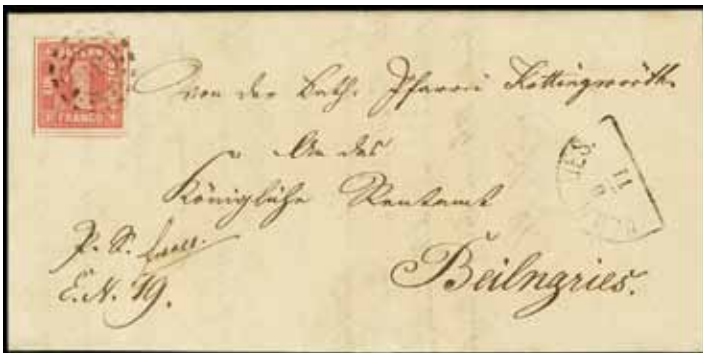 FRANCO
von der Kath. Pfarrei Kottingwörth
An das
Königliche Rentamt
P. S.
Beilngries.
E. N. 19.
11